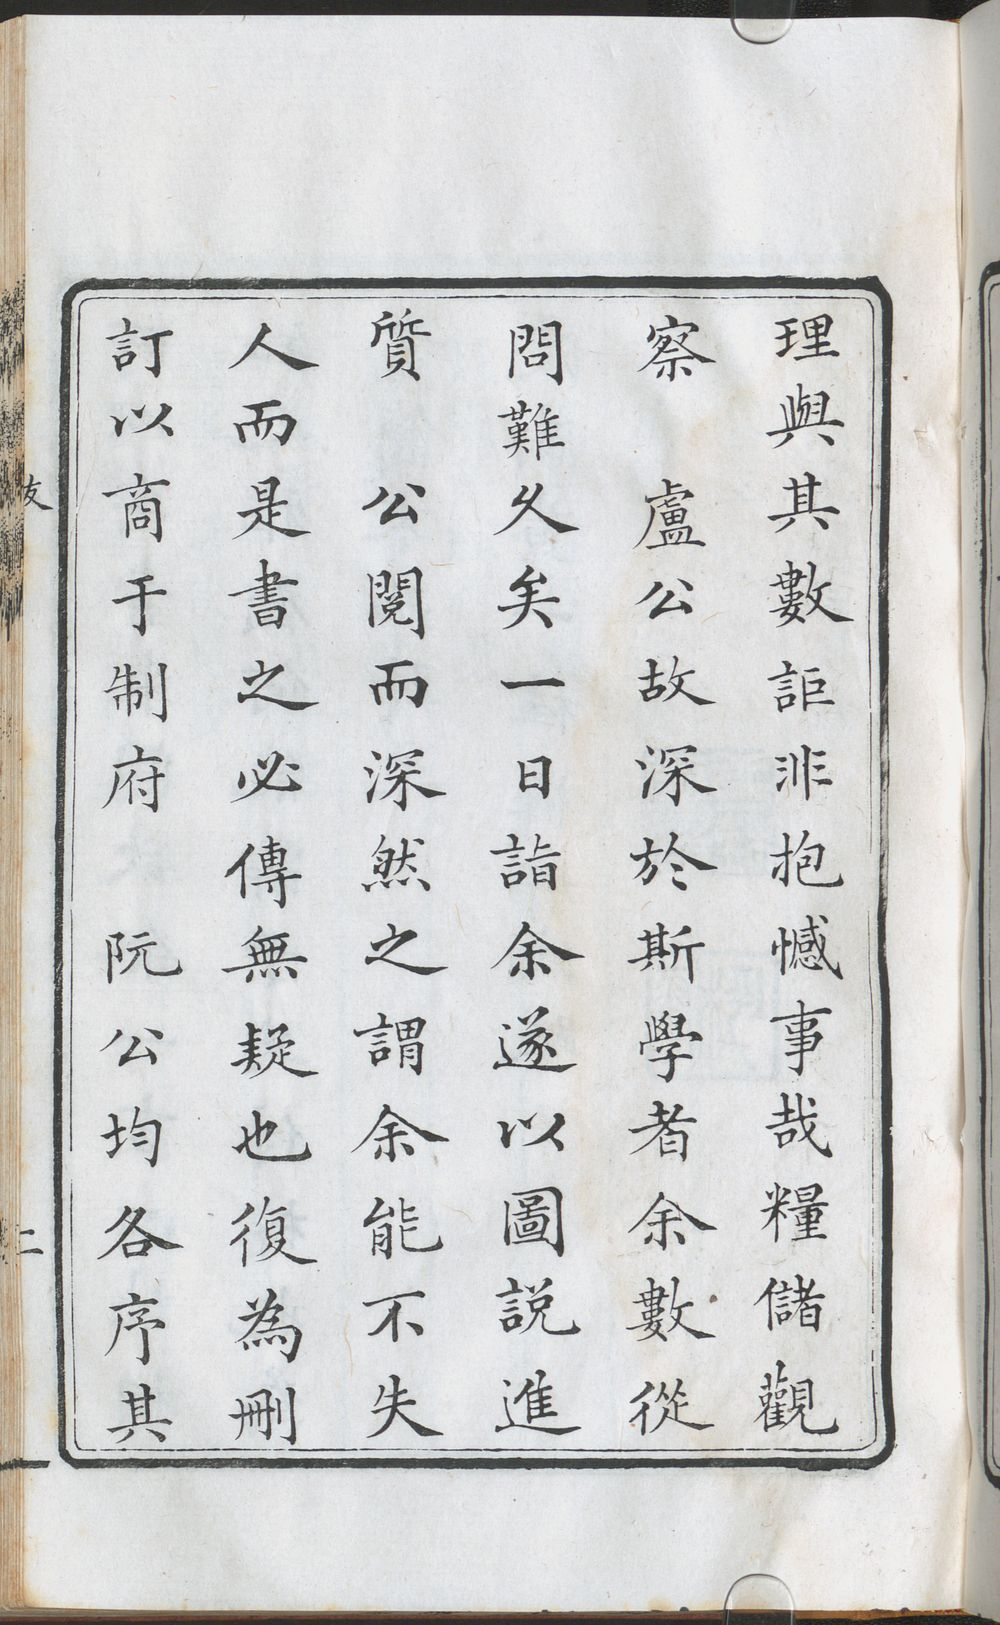 理與其數詎非抱憾事哉糧儲觀
察　盧公故深於斯學者余數從
問難久矣一日詣余遂以圖說進
質　公閱而深然之謂余能不失
人而是書之必傳無疑也復為刪
訂以商于制府　阮公均各序其
二